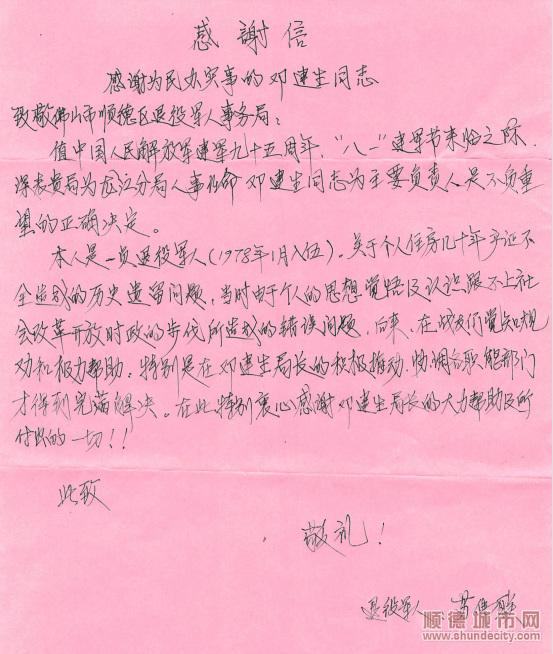 感謝信
感谢为民办实事的邓建生同志
致敬佛山市顺德区退役军人事务局:
值中国人民解放军建军九十五周年,“八一”建军节来临之际.
深表贵局为龙江分局人事任命邓建生同志为主要负责人.是不负重
望的正确决定。
本人是一员退役军人(1978年1月入伍)。关于个人住房几十年
全造成的历史遗留问题,当时由于个人的思想觉悟及认识跟不上社
会改革开放时政的步伐所造成的错误问题,后来、在战友们
劝和极力帮助.特别是在邓建生局长的积极推动.协调各职能部门
才得到完满解决。在此特别衷心感谢邓建生局长的大力帮助及所
付出的一切!!
此致
敬礼!
退役军人
顺德城市网
www.shundecity.com